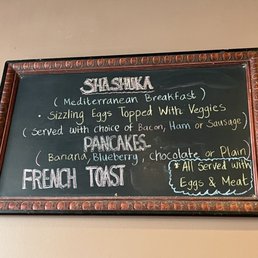 SHASHUKA
( Mediterranean Breakfast )
• Sizzling Eggs Topped With Veggies
( Served with choice of Bacon, Ham or Sausage)
PANCAKES-
( Banana, Blueberry, chocolate or Plain)
FRENCH TOAST
* All Served with
Eggs & Meat